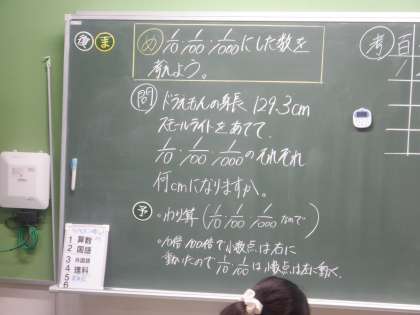 め 1/10・1/100・1/1000にした数を
考えよう。
ま
問 ドラえもんの身長 129.3cm
スモールライトをあてて、
1/10・1/100・1/1000のそれぞれ
何cmになりますか。
予 ・わり算(1/10・1/100・1/1000なので)
・10倍 100倍で小数点は右に
動いたので1/10 1/100は小数点は左に動く。
考 百
1 算数
2 国語
3 外国語
4 理科
5
6